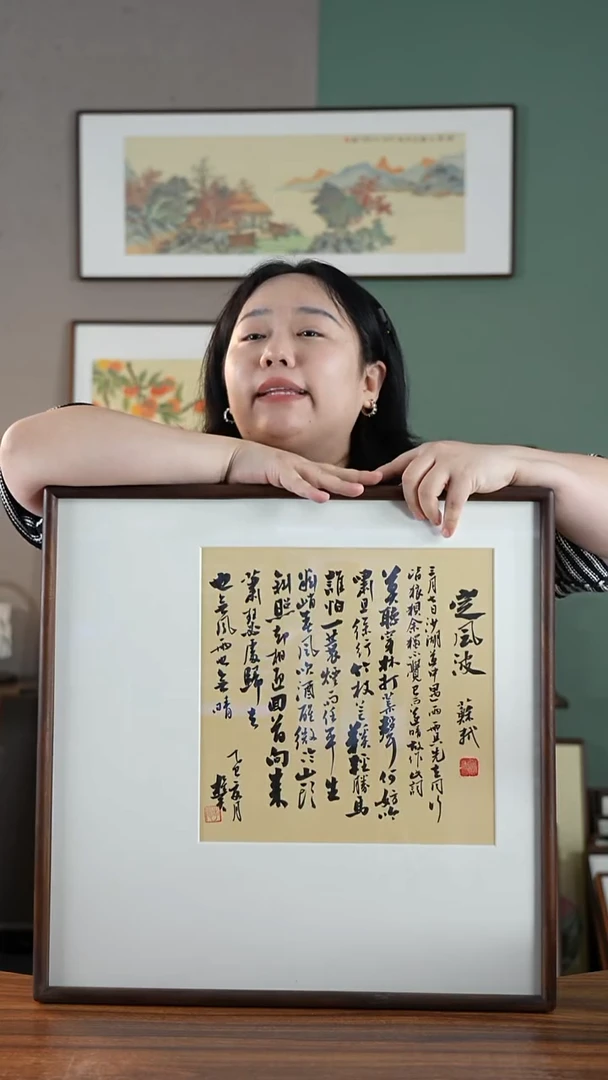 定風波
蘇軾
三月七日沙湖道中遇雨雨具先去同行
皆狼狽余獨不覺已而遂晴故作此詞
莫聽穿林打葉聲何妨吟
嘯且徐行竹杖芒鞋輕勝馬
誰怕一蓑煙雨任平生
料峭春風吹酒醒微冷山頭
斜照却相迎回首向來
蕭瑟處歸去
也無風雨也無晴
乙巳
月